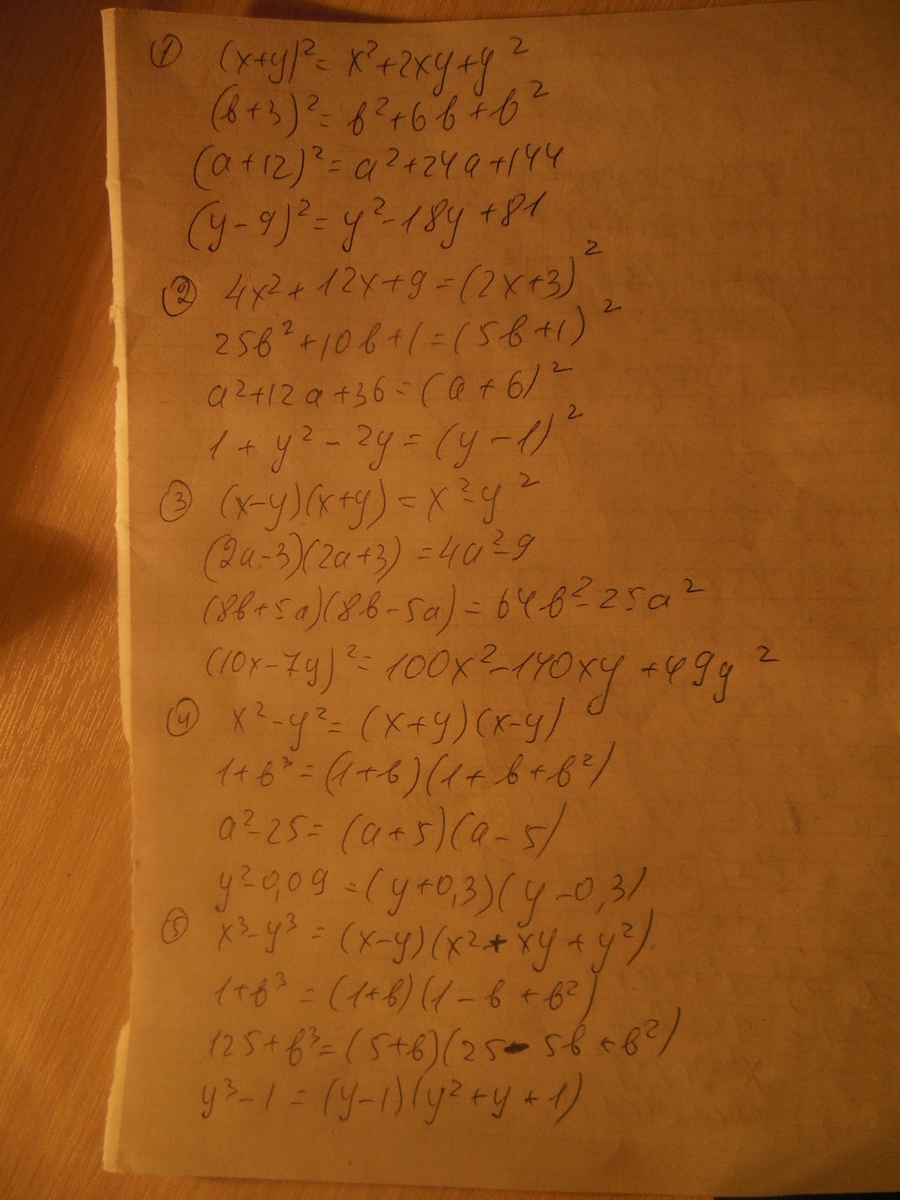 ① (x+y)²= x²+2xy+y²
(b+3)²= b²+6b+b²
(a+12)²= a²+24a+144
(y-9)²= y²-18y+81
② 4x²+12x+9=(2x+3)²
25b²+10b+1=(5b+1)²
a²+12a+36=(a+6)²
1+y²-2y=(y-1)²
③ (x-y)(x+y)=x²-y²
(2a-3)(2a+3)=4a²-9
(8b+5a)(8b-5a)=64b²-25a²
(10x-7y)²=100x²-140xy+49y²
④ x²-y²=(x+y)(x-y)
1+b³=(1+b)(1+b+b²)
a²-25=(a+5)(a-5)
y²-0,09=(y+0,3)(y-0,3)
⑤ x³-y³=(x-y)(x²+xy+y²)
1+b³=(1+b)(1-b+b²)
125+b³=(5+b)(25-5b+b²)
y³-1=(y-1)(y²+y+1)